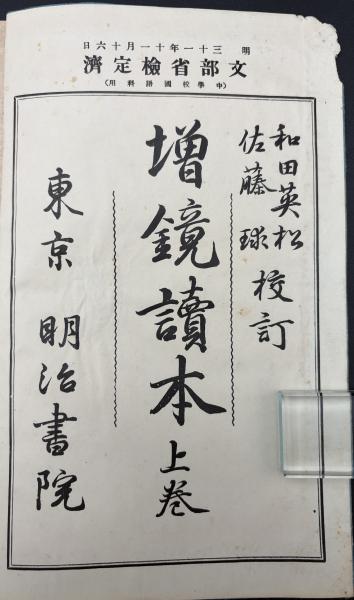 明 三十一年十一月十六日
文部省檢定濟
(中學校國語科用)
和田英松
佐藤球
校訂
增鏡讀本 上巻
東京 明治書院